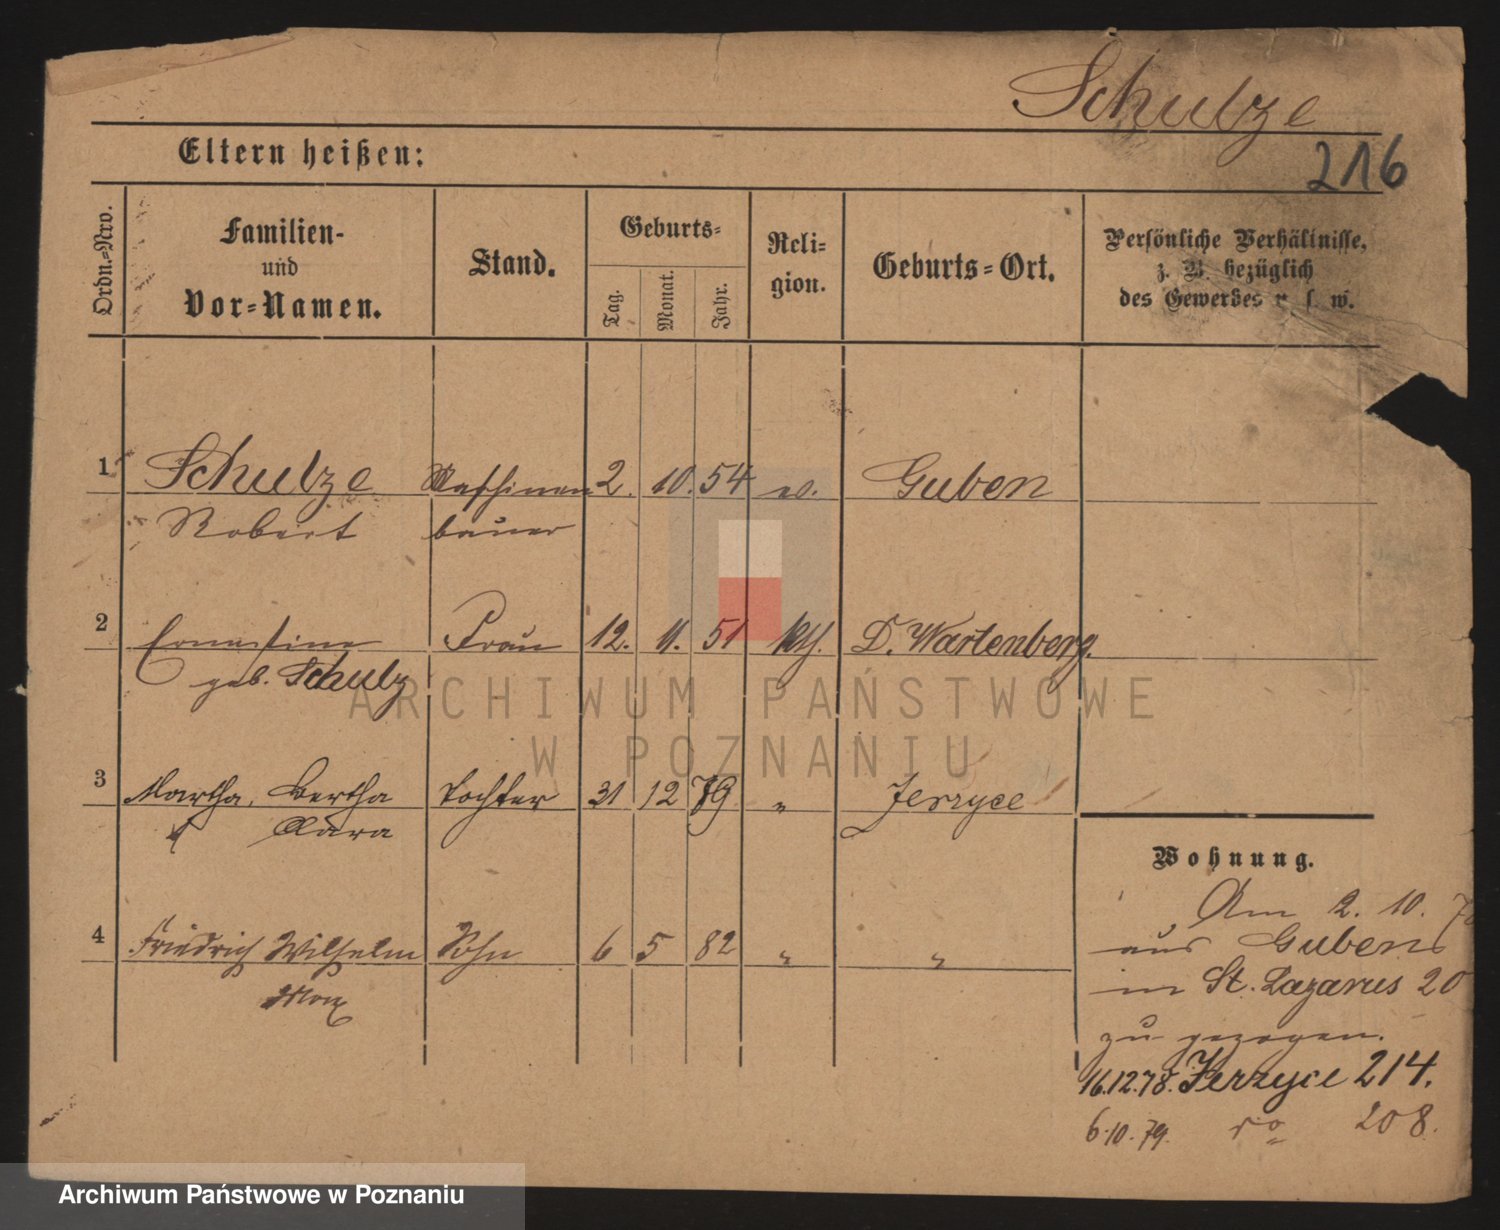 Schulze
Eltern heißen:
216
Ordn.-Nro.
Familien-
und
Vor-Namen.
Stand.
Geburts-
Tag.
Monat.
Jahr.
Reli-
gion.
Geburts-Ort.
Persönliche Verhältnisse,
z. B. bezüglich
des Gewerbes u. s. w.
1 Schulze Maschinen 2. 10. 54 ev. Guben
Robert bauer
2 Ernestine Frau 12. 11. 51 kth. D. Wartenberg.
geb. Schulz
3 Martha, Bertha Tochter 31 12 79 " Jerzyce
Clara
4 Friedrich Wilhelm Sohn 6 5 82 " "
Max
Wohnung.
Am 2. 10.
aus Guben
in St. Lazarus 20
zu gezogen.
16.12.78. Jerzyce 214.
6.10.79. do 208.
ARCHIWUM PAŃSTWOWE
W POZNANIU
Archiwum Państwowe w Poznaniu